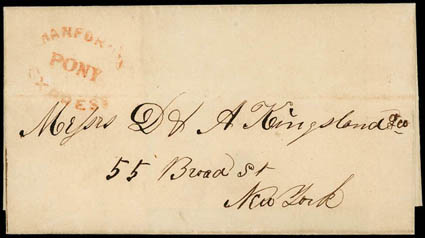 HANFORD'S
PONY
EXPRESS
Messrs D & A Kingsland & Co
55 Broad St
New York